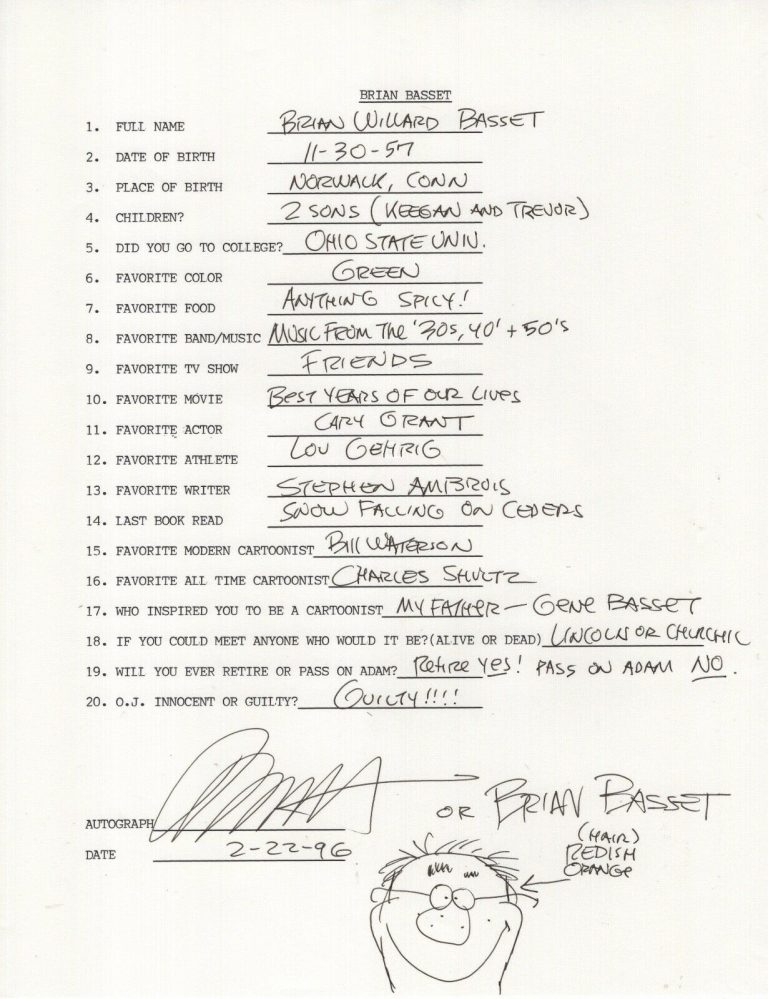 BRIAN BASSET
1. FULL NAME BRIAN WILLARD BASSET
2. DATE OF BIRTH 11-30-57
3. PLACE OF BIRTH NORWALK, CONN
4. CHILDREN? 2 SONS (KEEGAN AND TREVOR)
5. DID YOU GO TO COLLEGE? OHIO STATE UNIV.
6. FAVORITE COLOR GREEN
7. FAVORITE FOOD ANYTHING SPICY!
8. FAVORITE BAND/MUSIC MUSIC FROM THE '30s, 40' + 50's
9. FAVORITE TV SHOW FRIENDS
10. FAVORITE MOVIE BEST YEARS OF OUR LIVES
11. FAVORITE ACTOR CARY GRANT
12. FAVORITE ATHLETE LOU GEHRIG
13. FAVORITE WRITER STEPHEN AMBROIS
14. LAST BOOK READ SNOW FALLING ON CEDERS
15. FAVORITE MODERN CARTOONIST BILL WATERSON
16. FAVORITE ALL TIME CARTOONIST CHARLES SHULTZ
17. WHO INSPIRED YOU TO BE A CARTOONIST MY FATHER - GENE BASSET
18. IF YOU COULD MEET ANYONE WHO WOULD IT BE?(ALIVE OR DEAD) LINCOLN OR CHURCHIL
19. WILL YOU EVER RETIRE OR PASS ON ADAM? Retire yes! PASS ON ADAM NO.
20. O.J. INNOCENT OR GUILTY? GUILTY!!!!
AUTOGRAPH OR BRIAN BASSET
DATE 2-22-96
(HAIR)
REDISH
ORANGE